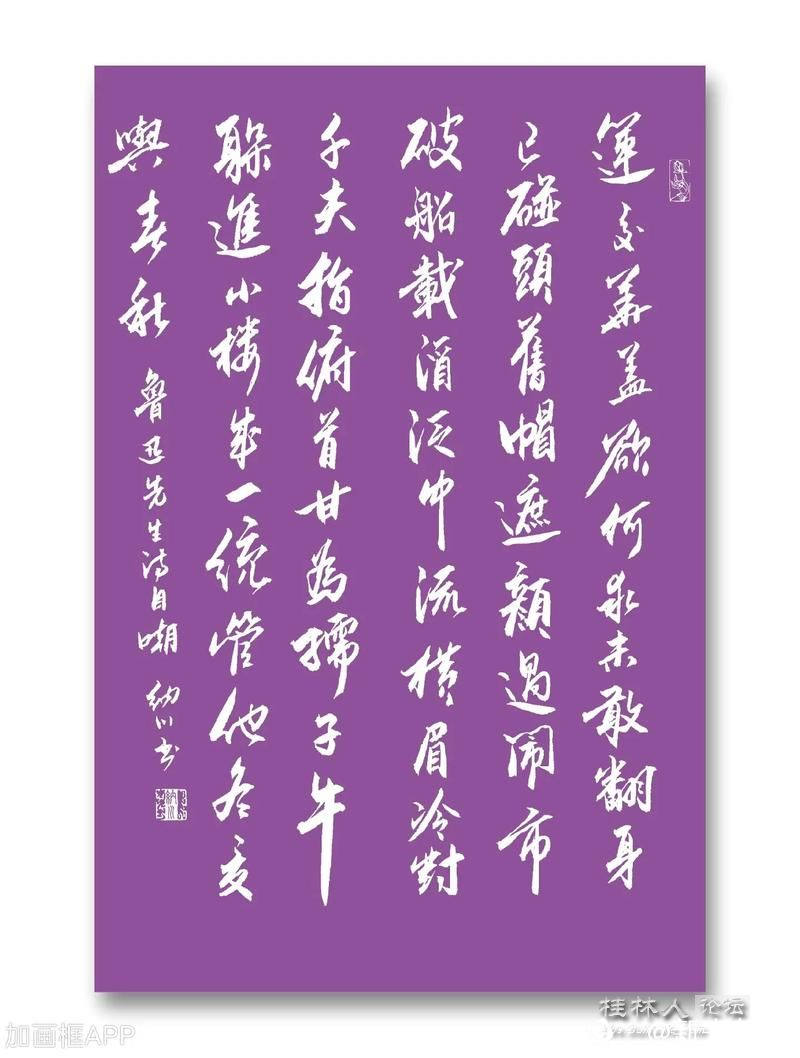 運交華盖欲何求未敢翻身
已碰頭舊帽遮顏過鬧市
破船載酒泛中流橫眉冷對
千夫指俯首甘為孺子牛
躲進小楼成一統管他冬夏
與春秋 魯迅先生詩自嘲 納川书
加画框APP
桂林人论坛